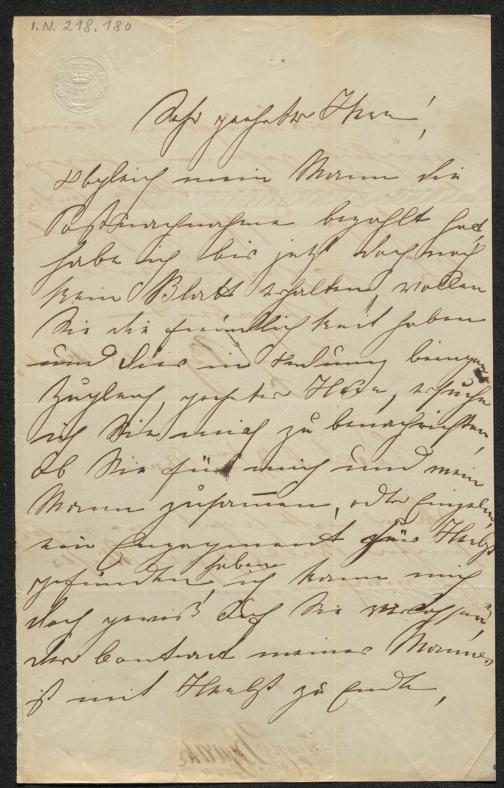 I.N. 218.180
Sehr geehrter Herr!
Obgleich mein Mann die
Postnachnahme bezahlt hat,
habe ich bis jetzt doch noch
kein Blatt erhalten, wollen
Sie die Freundlichkeit haben
und dies in Ordnung bringen
Zugleich, geehrter Herr, ersuche
ich Sie mich zu benachrichten,
ob Sie für mich und mein
Mann zusammen, oder Einzeln,
ein Engagement fürs Herbst
gefunden haben, ich kann mich
doch gewiß auf Sie verlassen,
der Contract meines Mannes
ist mit Herbst zu Ende,